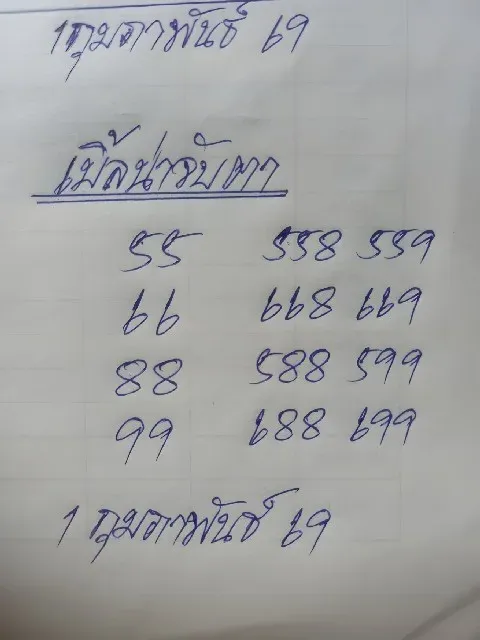 1 กุมภาพันธ์ 69
เบิ้ลน่าจับตา
55 558 559
66 668 669
88 588 599
99 688 699
1 กุมภาพันธ์ 69